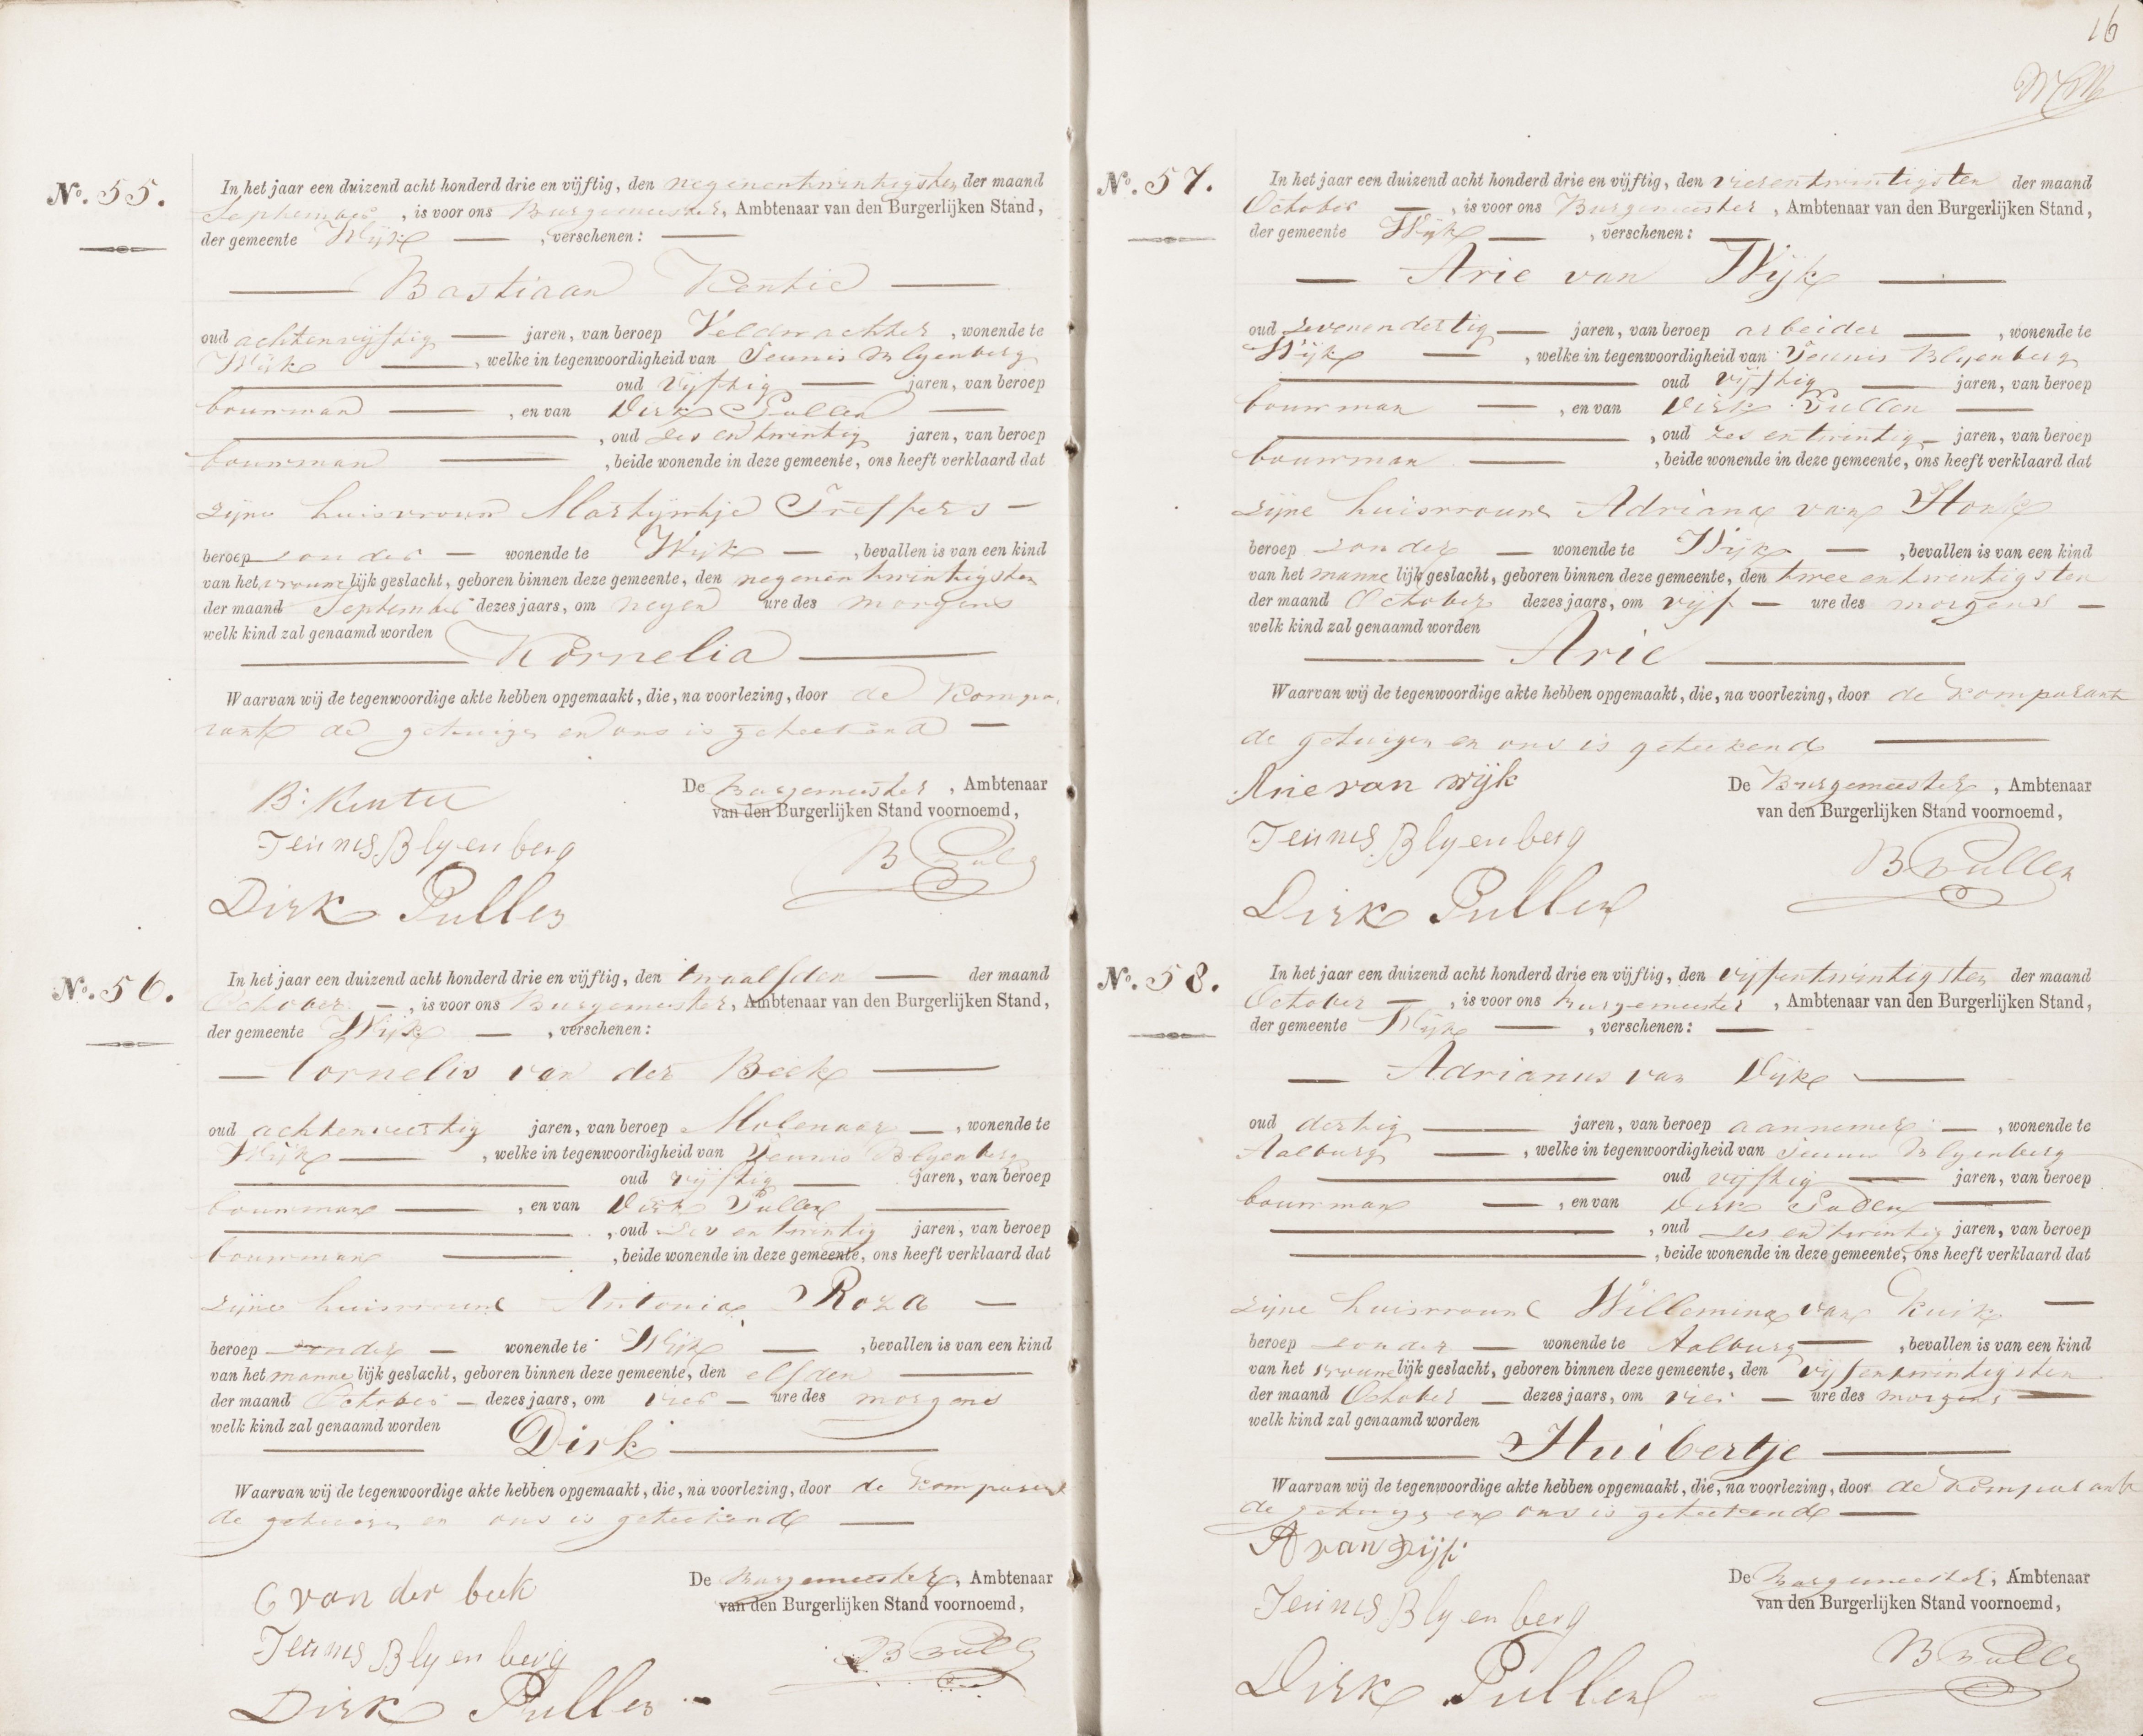 No. 55.
In het jaar een duizend acht honderd drie en vijftig, den negenentwintigsten der maand
September, is voor ons Burgemeester, Ambtenaar van den Burgerlijken Stand,
der gemeente Wijk, verschenen:
Bastiaan Kentie
oud achtenvijftig jaren, van beroep Veldwachter, wonende te
Wijk, welke in tegenwoordigheid van Teunis Blyenberg
oud vijftig jaren, van beroep
bouwman, en van Dirk Pullen
, oud zes en twintig jaren, van beroep
bouwman, beide wonende in deze gemeente, ons heeft verklaard dat
zijne huisvrouw Martijntje Treffers
beroep zonder wonende te Wijk, bevallen is van een kind
van het vrouwelijk geslacht, geboren binnen deze gemeente, den negenentwintigsten
der maand September dezes jaars, om negen ure des morgens
welk kind zal genaamd worden
Kornelia
Waarvan wij de tegenwoordige akte hebben opgemaakt, die, na voorlezing, door de kompa
rant de getuigen en ons is geteekend
B: Kentie
De Burgemeester, Ambtenaar
van den Burgerlijken Stand voornoemd,
Teunis Blyenberg
B Pullen
Dirk Pullen
No. 56.
In het jaar een duizend acht honderd drie en vijftig, den twaalfden der maand
October, is voor ons Burgemeester, Ambtenaar van den Burgerlijken Stand,
der gemeente Wijk, verschenen:
Cornelis van der Beek
oud achtenveertig jaren, van beroep Molenaar, wonende te
Wijk, welke in tegenwoordigheid van Teunis Blyenberg
oud vijftig jaren, van beroep
bouwman, en van Dirk Pullen
, oud zes en twintig jaren, van beroep
bouwman, beide wonende in deze gemeente, ons heeft verklaard dat
zijne huisvrouw Antonia Roza
beroep zonder wonende te Wijk, bevallen is van een kind
van het mannelijk geslacht, geboren binnen deze gemeente, den elfden
der maand October dezes jaars, om vier ure des morgens
welk kind zal genaamd worden
Dirk
Waarvan wij de tegenwoordige akte hebben opgemaakt, die, na voorlezing, door de komparant
de getuigen en ons is geteekend
C van der beek
De Burgemeester, Ambtenaar
van den Burgerlijken Stand voornoemd,
Teunis Blyenberg
B Pullen
Dirk Pullen
16
No. 57.
In het jaar een duizend acht honderd drie en vijftig, den vierentwintigsten der maand
October, is voor ons Burgemeester, Ambtenaar van den Burgerlijken Stand,
der gemeente Wijk, verschenen:
Arie van Wijk
oud zevenendertig jaren, van beroep arbeider, wonende te
Wijk, welke in tegenwoordigheid van Teunis Blyenberg
oud vijftig jaren, van beroep
bouwman, en van Dirk Pullen
, oud zes en twintig jaren, van beroep
bouwman, beide wonende in deze gemeente, ons heeft verklaard dat
zijne huisvrouw Adriana van
beroep zonder wonende te Wijk, bevallen is van een kind
van het mannelijk geslacht, geboren binnen deze gemeente, den twee en twintigsten
der maand October dezes jaars, om vijf ure des morgens
welk kind zal genaamd worden
Arie
Waarvan wij de tegenwoordige akte hebben opgemaakt, die, na voorlezing, door de komparant
de getuigen en ons is geteekend
Arie van wijk
De Burgemeester, Ambtenaar
van den Burgerlijken Stand voornoemd,
Teunis Blyenberg
B Pullen
Dirk Pullen
No. 58.
In het jaar een duizend acht honderd drie en vijftig, den vijfentwintigsten der maand
October, is voor ons Burgemeester, Ambtenaar van den Burgerlijken Stand,
der gemeente Wijk, verschenen:
Adrianus van Wijk
oud dertig jaren, van beroep aannemer, wonende te
Aalburg, welke in tegenwoordigheid van Teunis Blyenberg
oud vijftig jaren, van beroep
bouwman, en van Dirk Pullen
, oud zes en twintig jaren, van beroep
, beide wonende in deze gemeente, ons heeft verklaard dat
zijne huisvrouw Willemina van Kuik
beroep zonder wonende te Aalburg, bevallen is van een kind
van het vrouwelijk geslacht, geboren binnen deze gemeente, den vijfentwintigsten
der maand October dezes jaars, om vier ure des morgens
welk kind zal genaamd worden
Huibertje
Waarvan wij de tegenwoordige akte hebben opgemaakt, die, na voorlezing, door de komparant
de getuigen en ons is geteekend
A van Wijk
De Burgemeester, Ambtenaar
van den Burgerlijken Stand voornoemd,
Teunis Blyenberg
B Pullen
Dirk Pullen